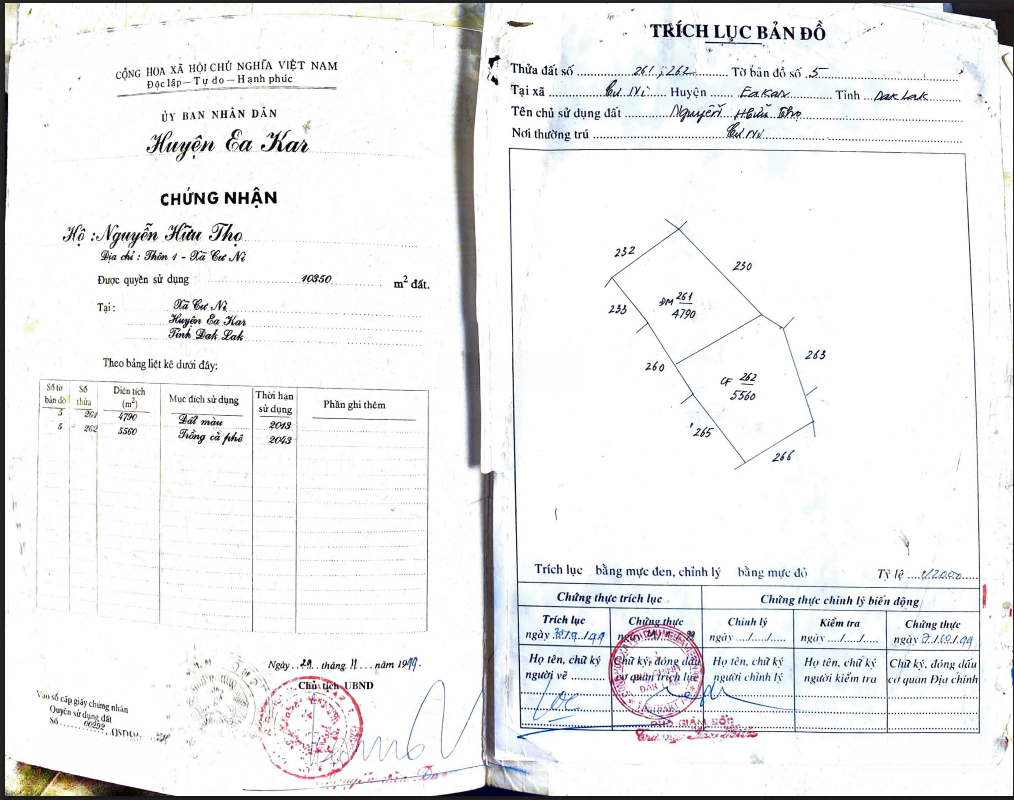 CỘNG HÒA XÃ HỘI CHỦ NGHĨA VIỆT NAM
Độc lập – Tự do – Hạnh phúc
ỦY BAN NHÂN DÂN
Huyện Ea Kar
CHỨNG NHẬN
Hộ : Nguyễn Hữu Thọ
Địa chỉ : Thôn 1 - Xã Cư Ni
Được quyền sử dụng 10350 m² đất.
Tại : Xã Cư Ni
Huyện Ea Kar
Tỉnh Đak Lak
Theo bảng liệt kê dưới đây:
Số tờ bản đồ Số thửa Diện tích (m²) Mục đích sử dụng Thời hạn sử dụng Phần ghi thêm
5 261 4790 Đất màu 2013
5 262 5560 Trồng cà phê 2043
Ngày 29 tháng 11 năm 1999.
Chủ tịch UBND
Vào sổ cấp giấy chứng nhận
Quyền sử dụng đất
Số 00292 QSDĐ/
TRÍCH LỤC BẢN ĐỒ
Thửa đất số 261 ; 262 Tờ bản đồ số 5
Tại xã Cư Ni Huyện EaKar Tỉnh Dak Lak
Tên chủ sử dụng đất Nguyễn Hữu Thọ
Nơi thường trú Cư Ni
232
230
ĐM 261
4790
233
263
260
CF 262
5560
265
266
Trích lục bằng mực đen, chỉnh lý bằng mực đỏ Tỷ lệ 1/2000
Chứng thực trích lục Chứng thực chỉnh lý biến động
Trích lục Chứng thực Chỉnh lý Kiểm tra Chứng thực
ngày .../.../... ngày .../.../...
Họ tên, chữ ký người vẽ Chữ ký, đóng dấu cơ quan trích lục Họ tên, chữ ký người chỉnh lý Họ tên, chữ ký người kiểm tra Chữ ký, đóng dấu cơ quan Địa chính
PHÓ GIÁM ĐỐC